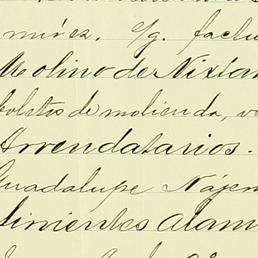 muéz. o/g. factu
Molino de Nixtam
boletos de molienda, ve
Arrendatarios.
Guadalupe Nájer
limientos Alam